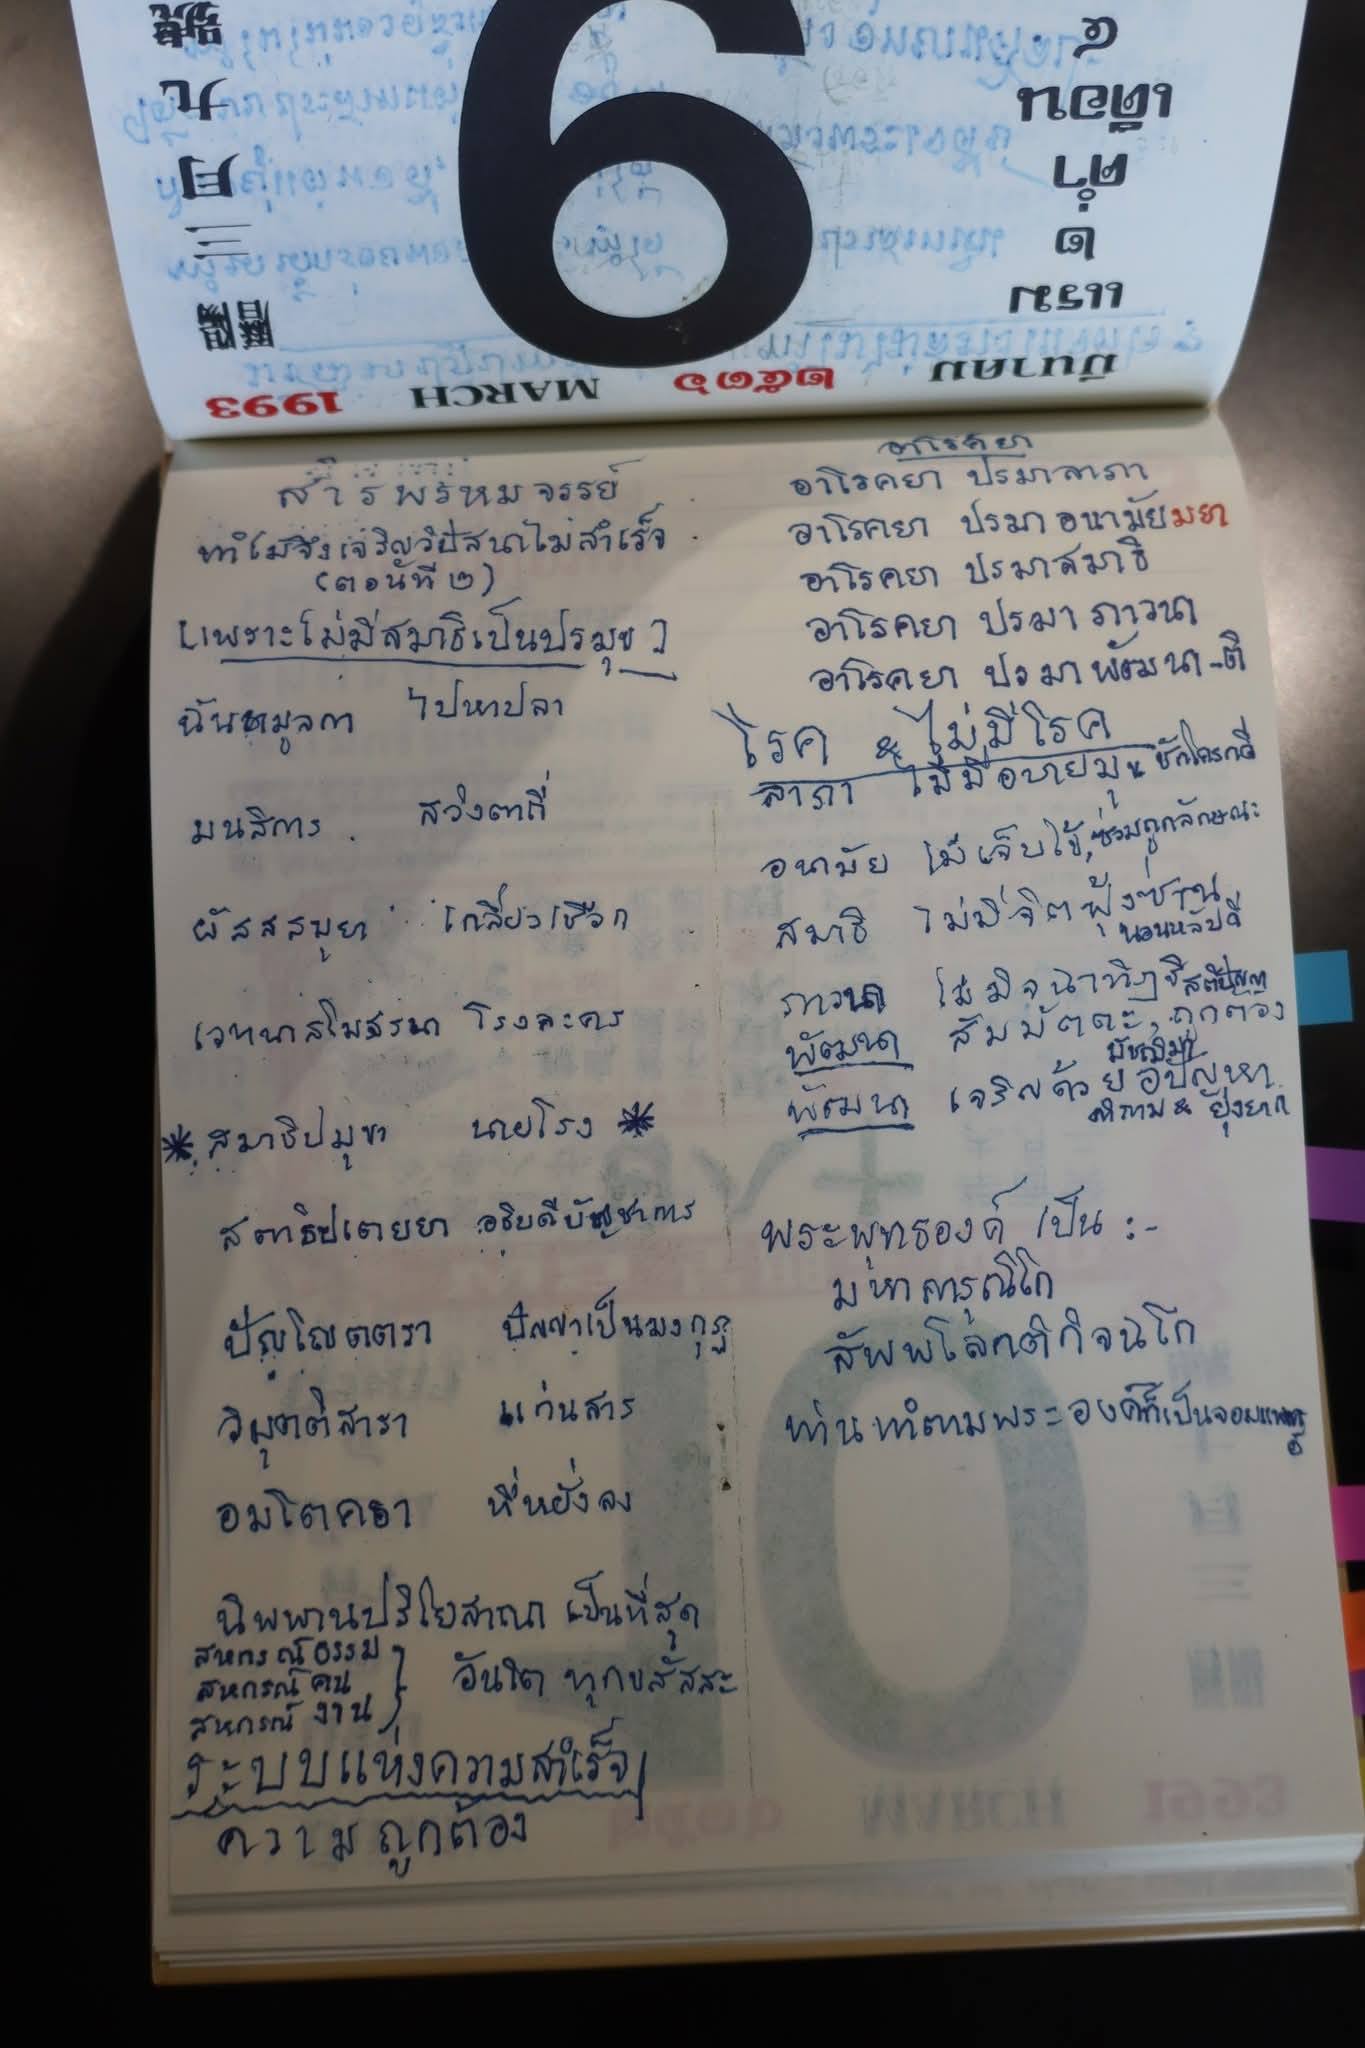 1993 MARCH ๒๕๓๖ มีนาคม
แรม
๒
ค่ำ
เดือน
๔
三
月
九
6
สำรพรหมจรรย์
ทำไมจึงเจริญวิปัสนาไม่สำเร็จ
(ตอนที่ ๒)
[เพราะไม่มีสมาธิเป็นประมุข]
ฉันทมูลกา ไปหาปลา
มนสิการ สว่งตาถี่
ผัสสสมุยา เกลี่ยวเชือก
เวทนาสโมสรณา โรงละคร
* สมาธิปมุขา นายโรง *
สตาธิปเตยยา อธิบดีบัญชาการ
ปัญโญตตรา ปัญญาเป็นมงกุฎ
วิมุตติสารา แก่นสาร
อมโตคธา ที่หยั่งลง
นิพพานปริโยสาณา เป็นที่สุด
สหกรณ์ธรรม
สหกรณ์ คน
สหกรณ์ งาน
ระบบแห่งความสำเร็จ
ความถูกต้อง
อาโรคยา
อาโรคยา ปรมาลาภา
อาโรคยา ปรมาอนามัยมยา
อาโรคยา ปรมาสมาธิ
อาโรคยา ปรมา ภาวนา
อาโรคยา ปรมาพัฒนา-ติ
โรค & ไม่มีโรค
ลาภา ไม่มีอบายมุข
อนามัย ไม่เจ็บไข้, ซ่วมถูกลักษณะ
สมาธิ ไม่มีจิตฟุ้งซ่าน
นอนหลับดี
ภาวนา
พัฒนา สัมมัตตะ, ถูกต้อง
พัฒนา เจริญด้วย
พระพุทธองค์ เป็น :-
มหาการุณิโก
สัพพโลกติกิจฉโก
ท่านทำตามพระองค์ก็เป็นจอมแพทย์